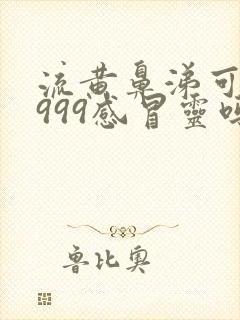 流黄鼻涕可
999感冒灵吗
鲁比奥